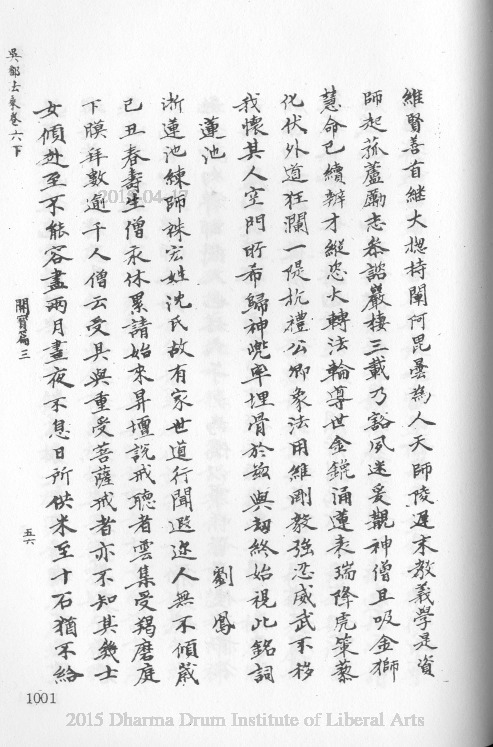 維賢善首継大揔持闡阿毘曇為人天師陵遲末教義學是資
師起菰蘆勵志叅詣嚴棲三載乃豁夙迷爰覩神僧且吸金獅
慧命已續辯才縦恣大轉法輪導世金鎞涌蓮表瑞降虎策藜
化伏外道狂瀾一隄抗禮公卿象法用維剛教強忍威武不移
我懷其人空門所希歸神兜率埋骨於茲與劫終始視此銘詞
劉鳳
蓮池
浙蓮池練師袾宏姓沈氏故有家世道行聞遐迩人無不傾葴
已丑春壽生僧永休累請始來昇壇說戒聽者雲集受羯磨庭
下膜拜數逾千人僧云受具與重受菩薩戒者亦不知其幾士
女傾赴至不能容盡兩月晝夜不息日所供米至十石猶不給
吳都法乘卷六下
開賢篇三
五六
1001
2015-04-17
2015 Dharma Drum Institute of Liberal Arts